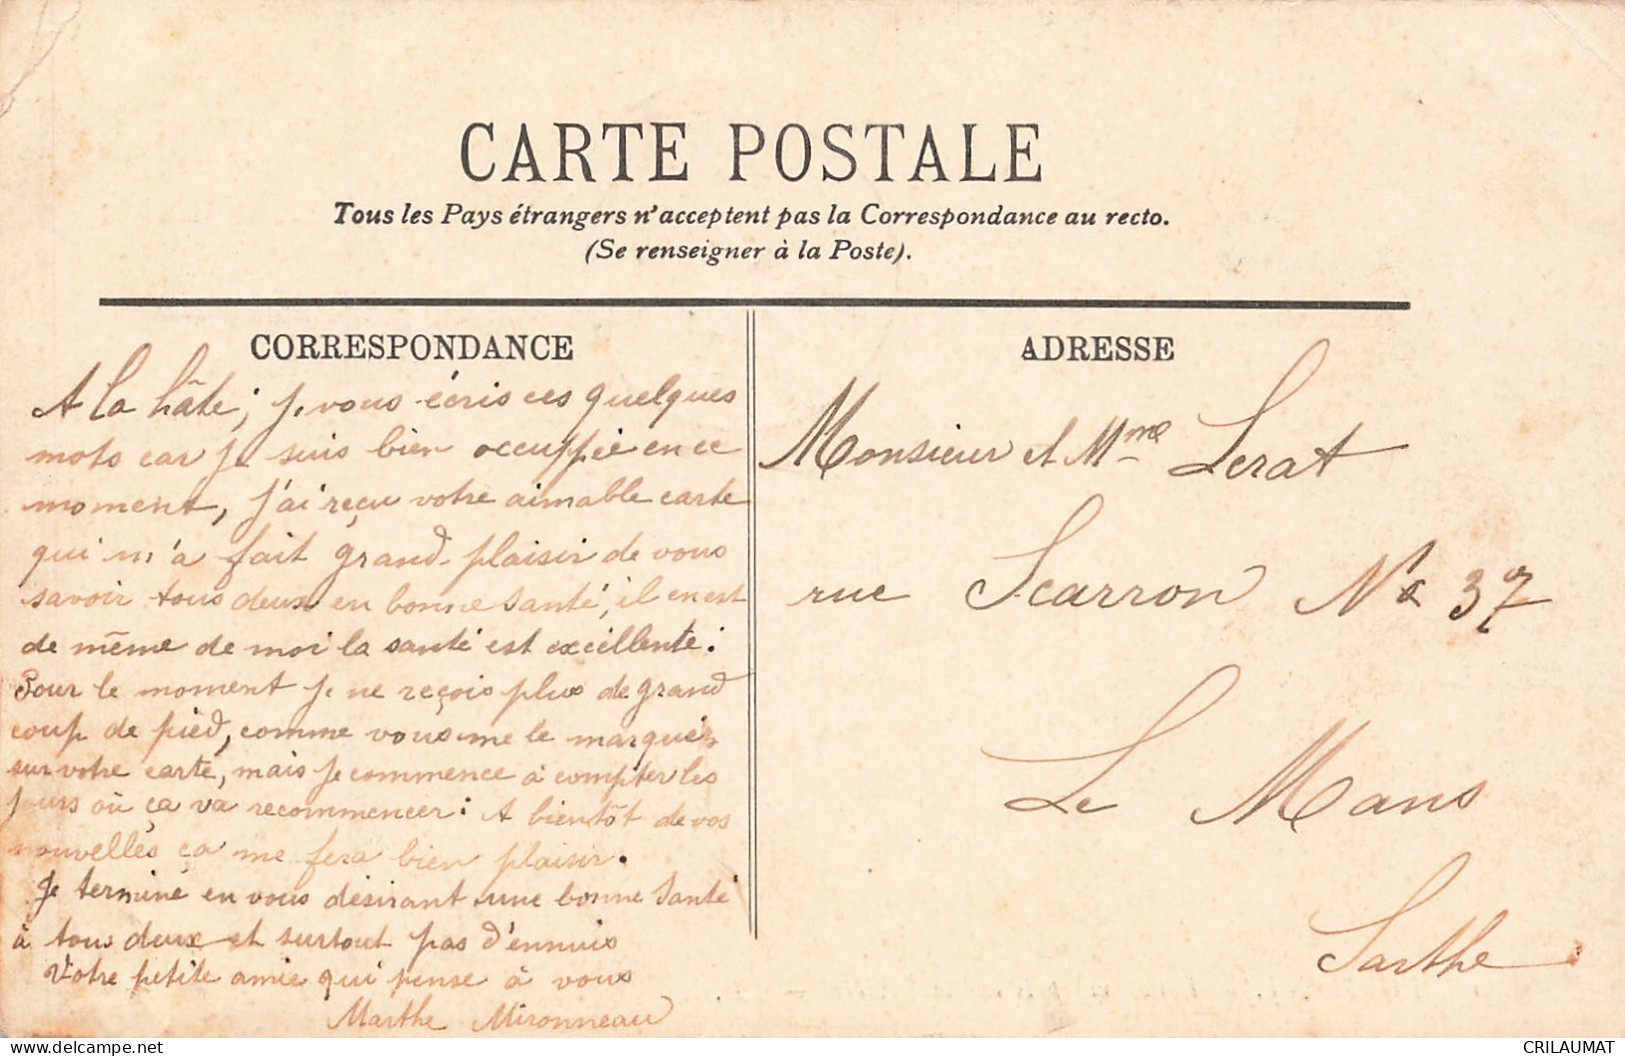 CARTE POSTALE
Tous les Pays étrangers n'acceptent pas la Correspondance au recto.
(Se renseigner à la Poste).
CORRESPONDANCE
A la hâte, je vous écris ces quelques
mots car je suis bien occuppée en ce
moment, j'ai reçu votre aimable carte
qui m'a fait grand plaisir de vous
savoir tous deux en bonne santé, il en est
de même de moi la santé est excellente.
Pour le moment je ne reçois plus de grand
coup de pied, comme vous me le marquez
sur votre carte, mais je commence à compter les
jours où ça va recommencer. A bientôt de vos
nouvelles ça me fera bien plaisir.
Je termine en vous désirant une bonne santé
à tous deux et surtout pas d'ennuis
Votre petite amie qui pense à vous
Marthe Mironneau
ADRESSE
Monsieur et Mme Lerat
rue Scarron No 37
Le Mans
Sarthe
www.delcampe.net
CRILAUMAT